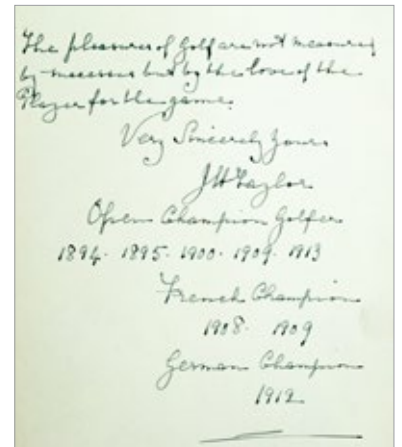 The pleasures of Golf are not measured
by successes but by the love of the
Player for the game.
Very Sincerely Yours
J H Taylor
Open Champion Golfer
1894. 1895. 1900. 1909. 1913
French Champion
1908. 1909
German Champion
1912